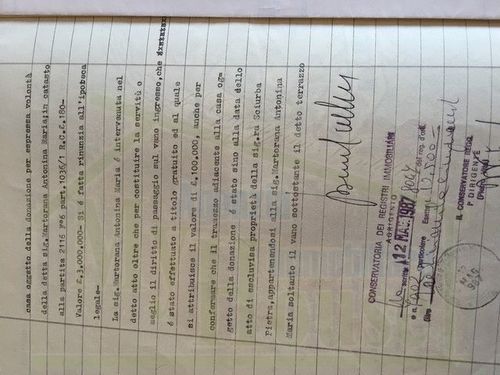 casa oggetto della donazione per espressa volontà
della detta sig.Martorana Antonina Maria;in catasto
alla partita 2116 f°6 part.1036/1 R.C.£.160-
Valore £.3.000.000- Si é fatta rinunzia all'ipoteca
legale-
La sig.Martorana Antonina Maria é intervenuta nel
detto atto oltre che per costituire la servitù o
meglio il diritto di passaggio sul vano ingresso,che
é stato effettuato a titolo gratuito ed al quale
si attribuisce il valore di £.100.000, anche per
confermare che il terrazzo adiacente alla casa og-
getto della donazione é stato sino alla data dello
atto di esclusiva proprietà della sig.ra Sciurba
Pietra,appartenendosi alla sig.Martorana Antonina
Maria soltanto il vano sottostante il detto terrazzo
CONSERVATORIA DEI REGISTRI IMMOBILIARI
AGRIGENTO
12 MAG. 1987
particolare
IL CONSERVATORE REGG.
P. DIRIGENTE